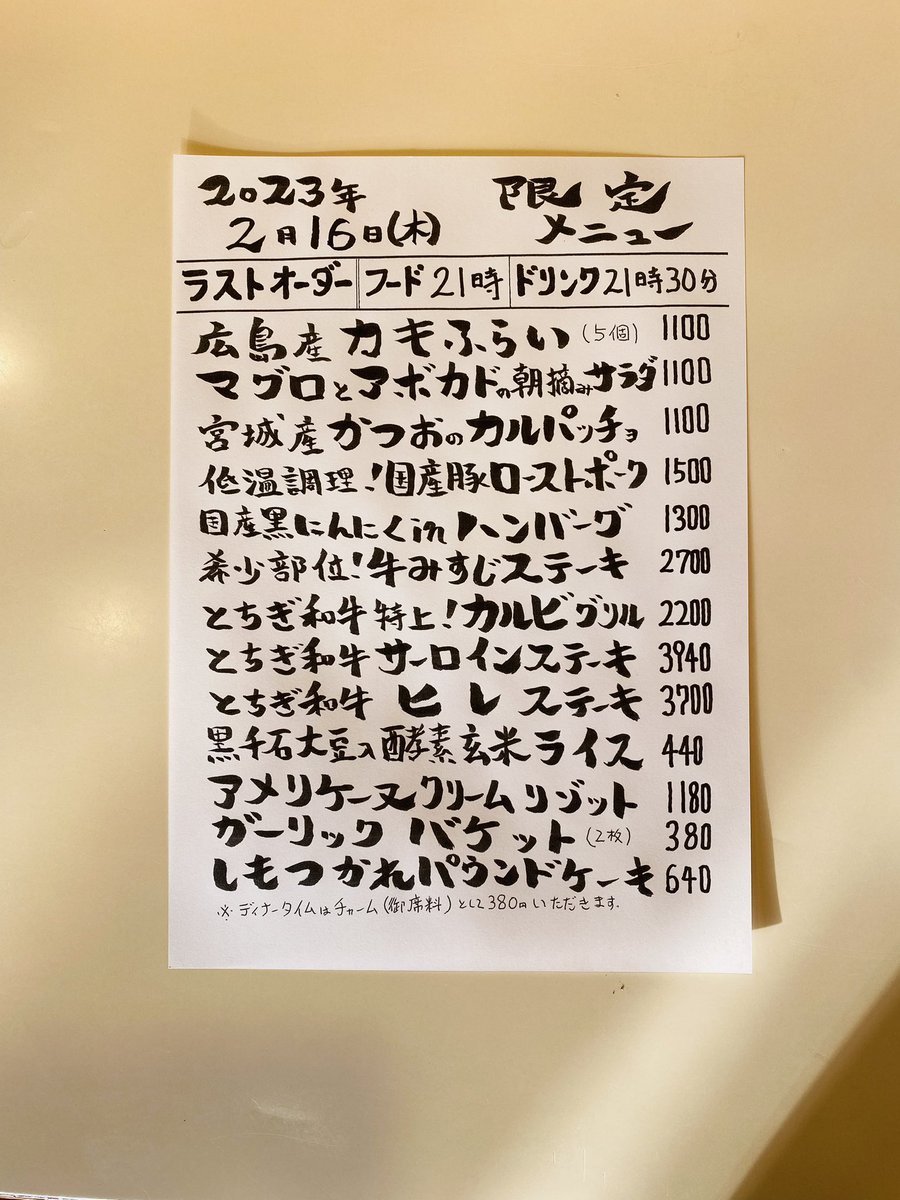 2023年 限定
2月16日(木) メニュー
ラストオーダー フード21時 ドリンク21時30分
広島産カキふらい(5個) 1100
マグロとアボカドの朝摘みサラダ 1100
宮城産かつおのカルパッチョ 1100
低温調理!国産豚ローストポーク 1500
国産黒にんにくinハンバーグ 1300
希少部位!牛みすじステーキ 2700
とちぎ和牛特上!カルビグリル 2200
とちぎ和牛サーロインステーキ 3940
とちぎ和牛ヒレステーキ 3700
黒千石大豆入酵素玄米ライス 440
アメリケーヌクリームリゾット 1180
ガーリックバケット(2枚) 380
しもつかれパウンドケーキ 640
※ディナータイムはチャーム(御席料)として380円いただきます.